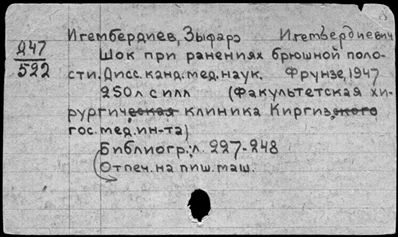 Игембердиев, Зыфарэ Игетвердиевич
247
522
Шок при ранениях брюшной поло-
сти. Дисс. канд. мед. наук. Фрунзе, 1947
250 л с илл (Факультетская хи-
рургическая клиника Киргизского
гос. мед. ин-та)
Библиогр: л. 227-248
Отпеч. на пиш. маш.